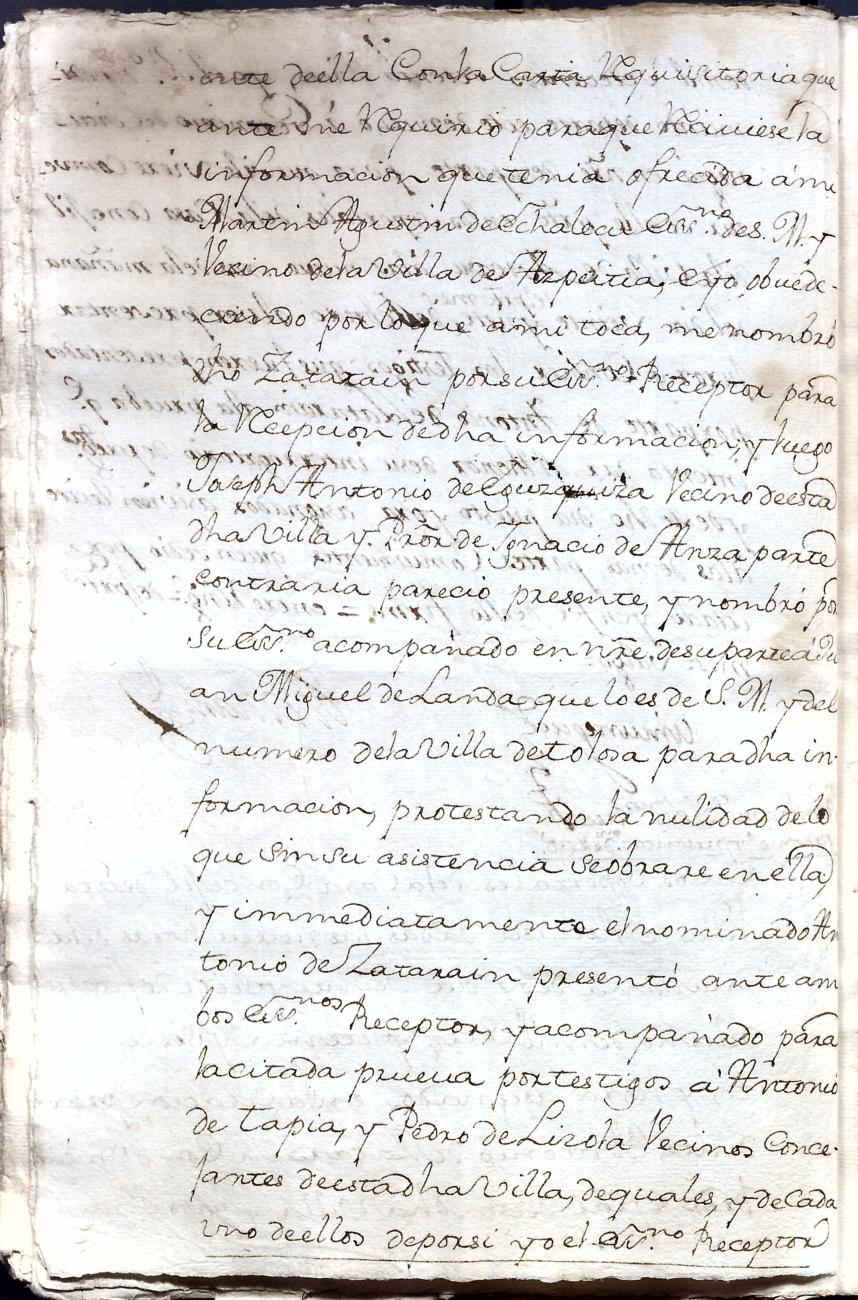 ante de ella Con la Carta Requisitoria que
ante me Requirio para que Reciviese la
informacion que tenia ofrecida a mi
Martin Agustin de Echalecu Ess.no de S. M. y
Vecino de la Villa de Azpeitia, e yo obede-
ciendo por lo que a mi toca, me nombró
dho Zatarain por su Ess.no Receptor para
la Recepcion de dha informacion, y luego
Joseph Antonio de Eguzquiza Vecino de esta
dha Villa y Pror de Ignacio de Anza parte
contraria pareció presente, y nombró por
su Ess.no acompañado en nre. de su parte á Ju
an Miguel de Landa que lo es de S. M. y del
numero de la Villa de tolosa para dha in-
formacion, protestando la nulidad de lo
que sin su asistencia se obrare en ella,
y immediatamente el nominado An
tonio de Zatarain presentó ante am
bos Ess.nos Receptor, y acompañado para
la citada prueva por testigos á Antonio
de tapia, y Pedro de Lizola Vecinos Conce-
jantes de esta dha Villa, de quales, y de Cada
uno de ellos de por si yo el Ess.no Receptor